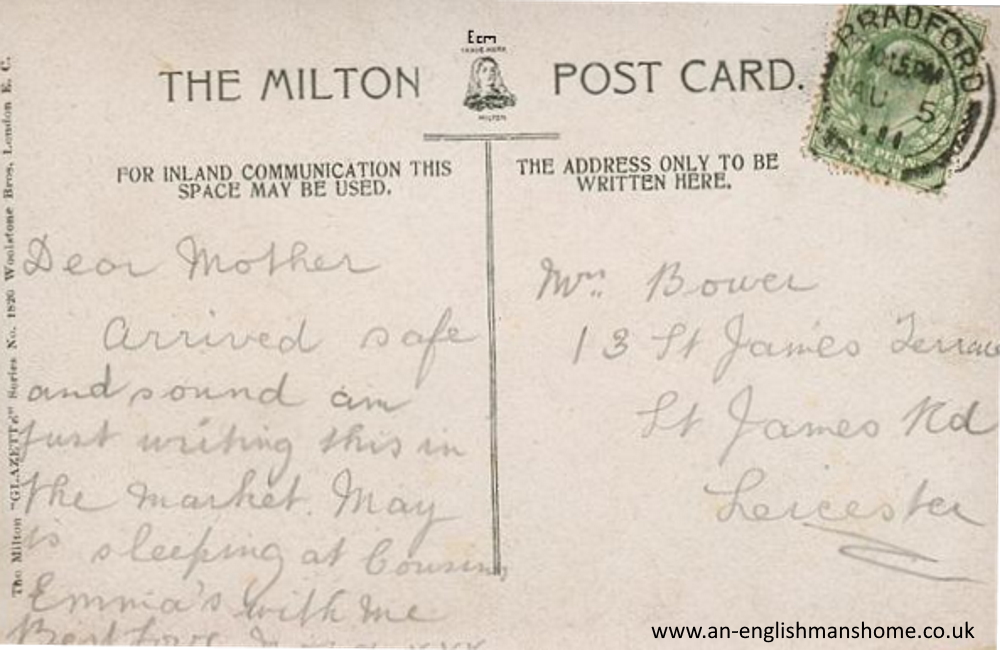 Ecm
TRADE MARK
THE MILTON POST CARD.
MILTON
BRADFORD
15 PM
AU 5
11
FOR INLAND COMMUNICATION THIS
SPACE MAY BE USED.
THE ADDRESS ONLY TO BE
WRITTEN HERE.
The Milton "GLAZETTE" Series No. 1820 Woolstone Bros, London E. C.
Dear Mother
Arrived safe
and sound am
just writing this in
the market. May
is sleeping at Cousin
Emma's with me
Best love
Mrs Bower
13 St James Terrace
St James Rd
Leicester
www.an-englishmanshome.co.uk